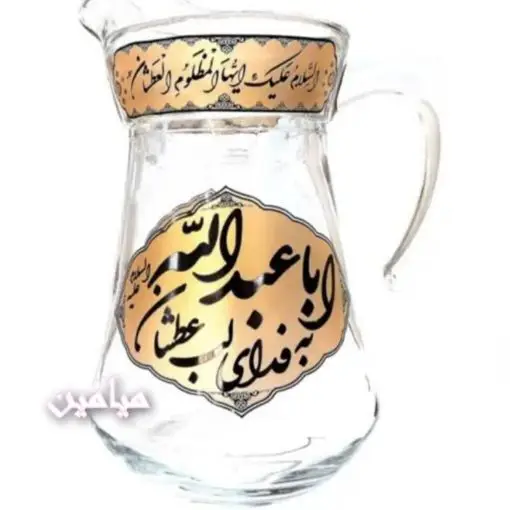 السلام علیک ایها المظلوم العطشان
اباعبدالله
السلام علیه
به فدای لب عطشان
میامین